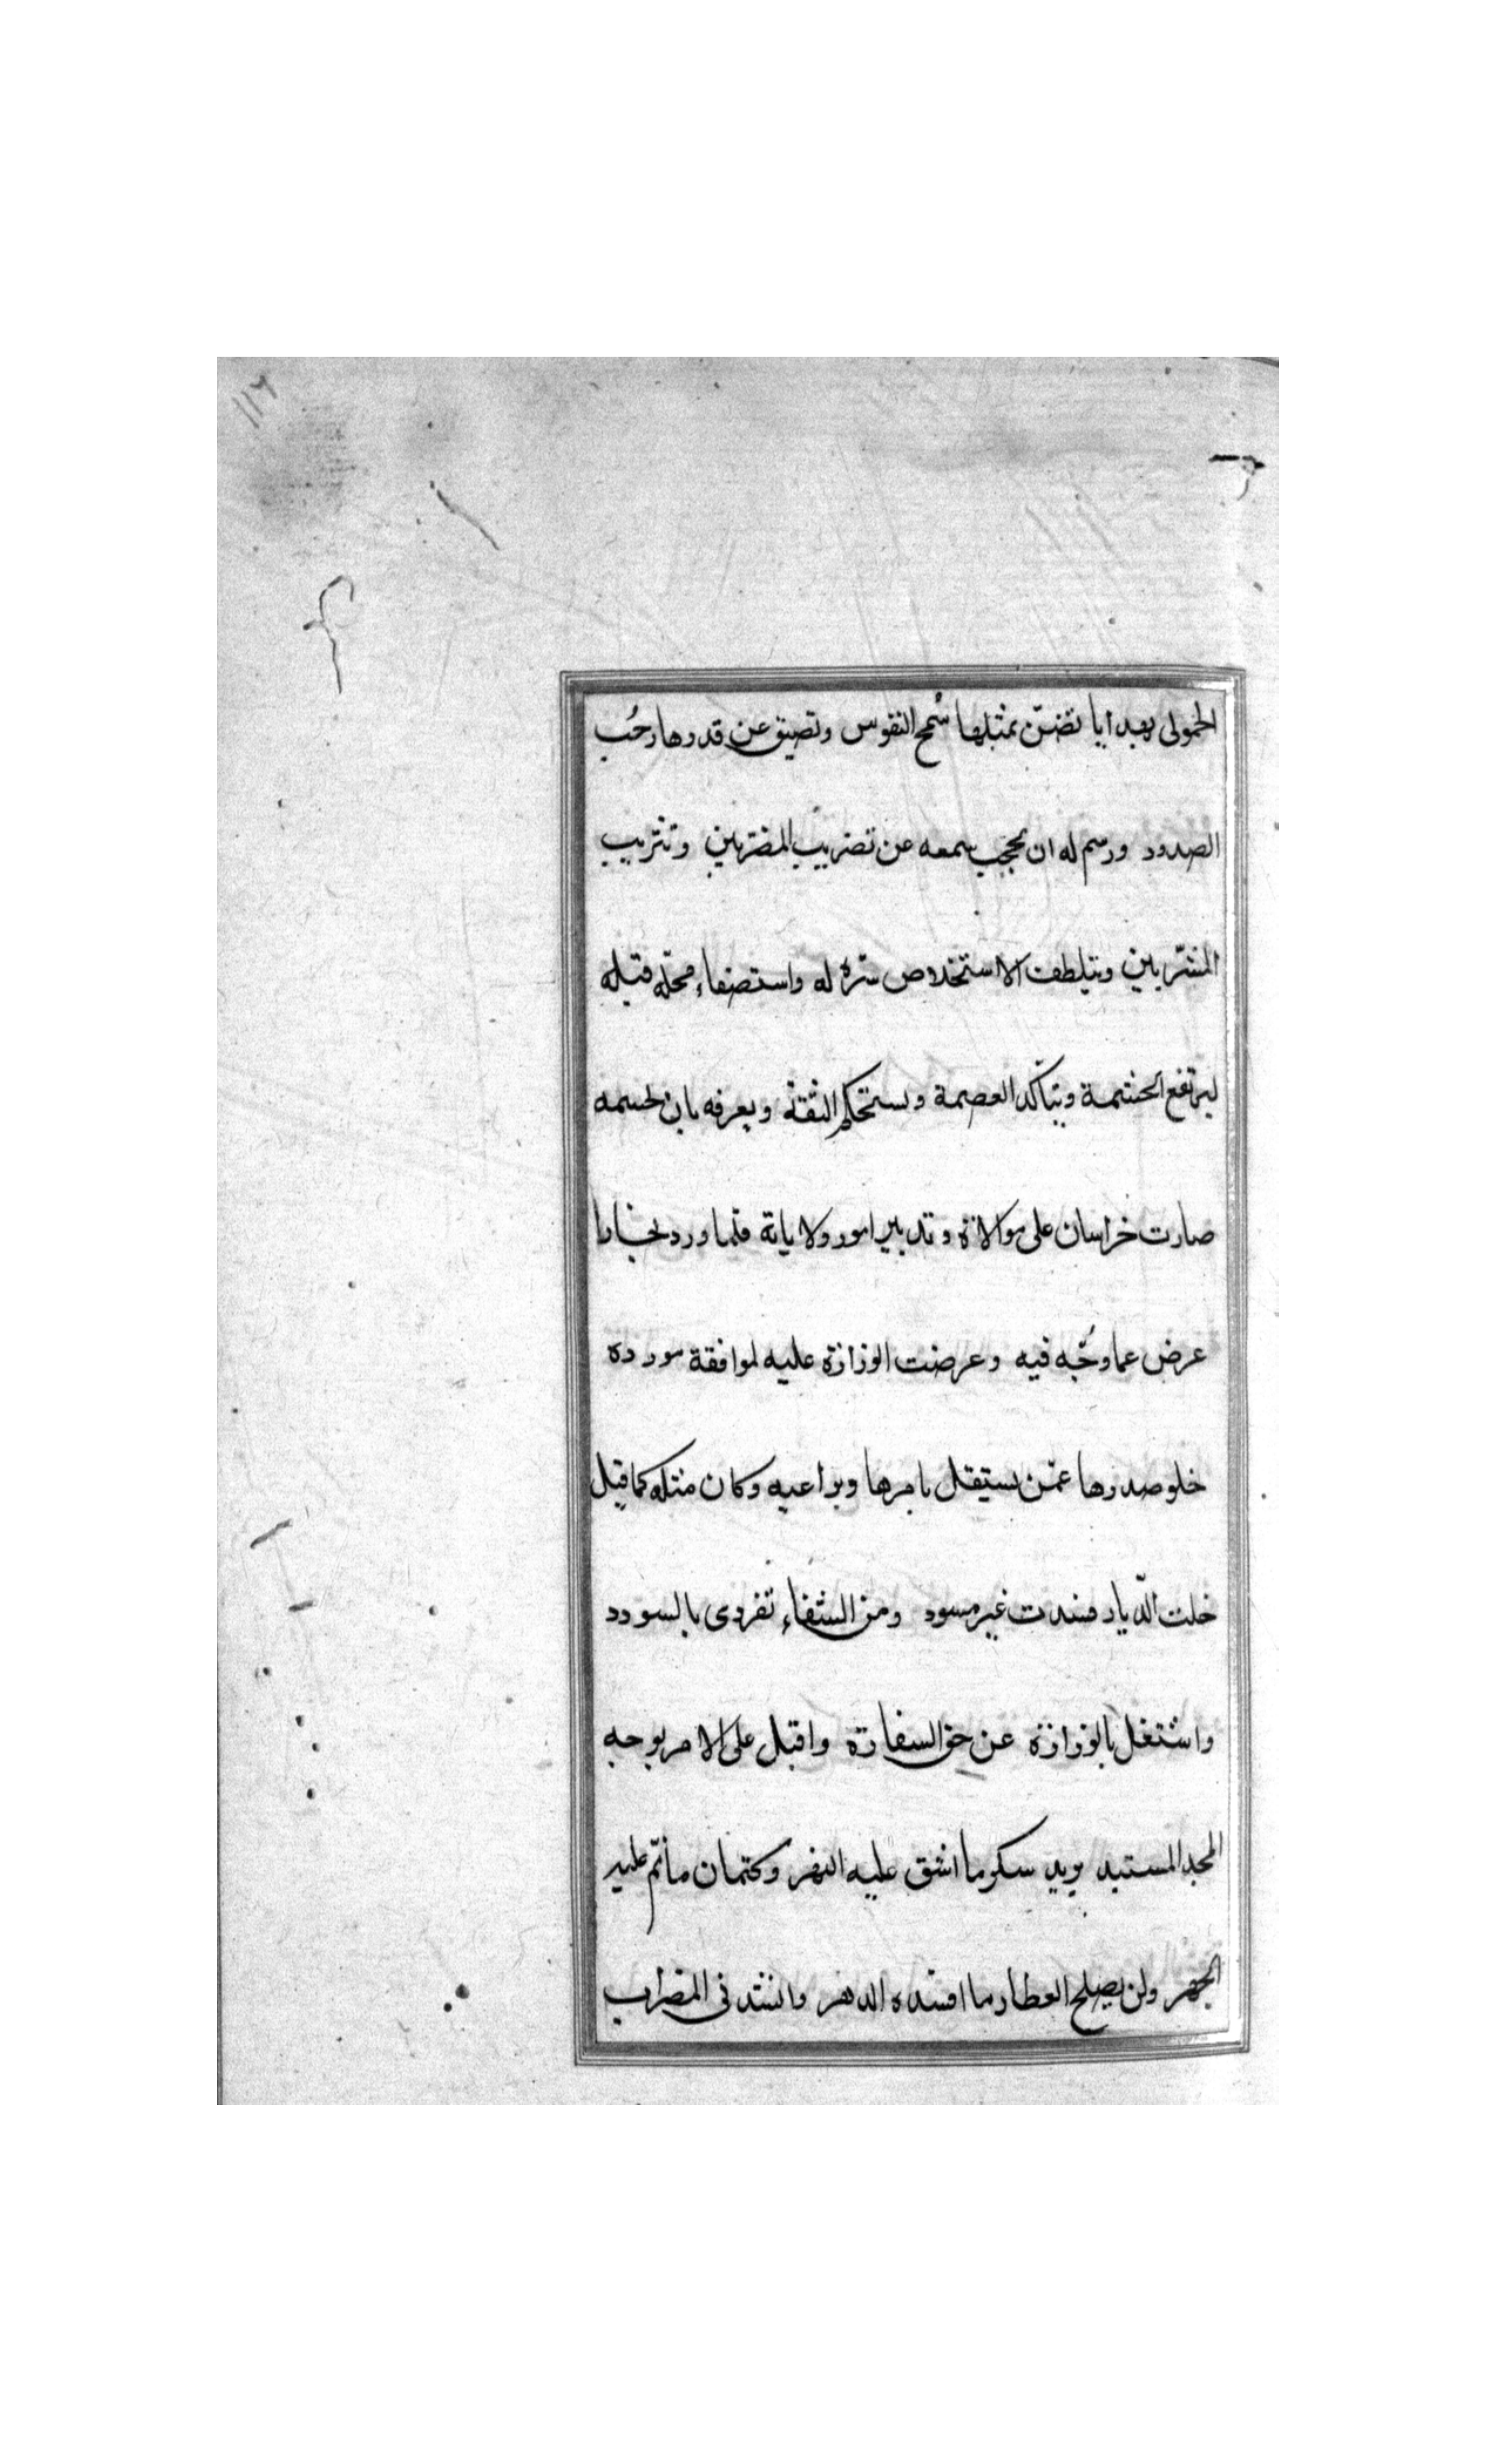 ١١٢
الحمولى بهدايا تضنّ بمثلها سُمح النفوس وتضيق عن قدرها رحُب
الصدور ورسم له ان يحجب سمعه عن تضريب المضربين وتثريب
المثرّبين ويتلطف لاستخلاص سرّه له واستصفاء محلّه قبله
ليرتفع الحشمة ويتأكد العصمة ويستحكم الثقة ويعرفه بان لحسمه
صارت خراسان على موالاة وتدبير امور ولاياتة فلما ورد بخارا
عرض عما وجّه فيه وعرضت الوزارة عليه لموافقة مورده
خلو صدرها عمّن يستقل بامرها ويراعيه وكان مثله كما قيل
خلت الدّيار فسدت غير مسود ومن الشقاء تفردى بالسودد
واشتغل بالوزارة عن حق السفارة واقبل على الامر بوجه
المجد المستبد يريد سكر ما انبثق عليه النهر وكتمان ما نمّ عليه
الجهر ولن يصلح العطار ما افسده الدهر وانشد فى المضراب